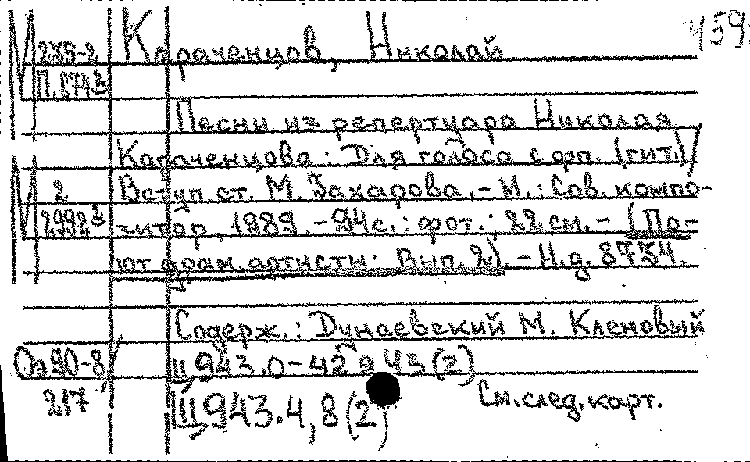 459
М 235-2 Караченцов, Николай
П.874з
Песни из репертуара Николая
Караченцова: Для голоса с фп. (гит.)/
М 2 Вступ. ст. М. Захарова. - М.: Сов. компо-
2992з зитор, 1989. - 94 с.: фот.; 22 см. - (По-
ют драм. артисты: Вып. 2). - Н.д. 8734.
Содерж.: Дунаевский М. Кленовый
Оэ 90-8 Щ943.0-42я43(2)
217 Щ943.4,8(2) См. след. карт.